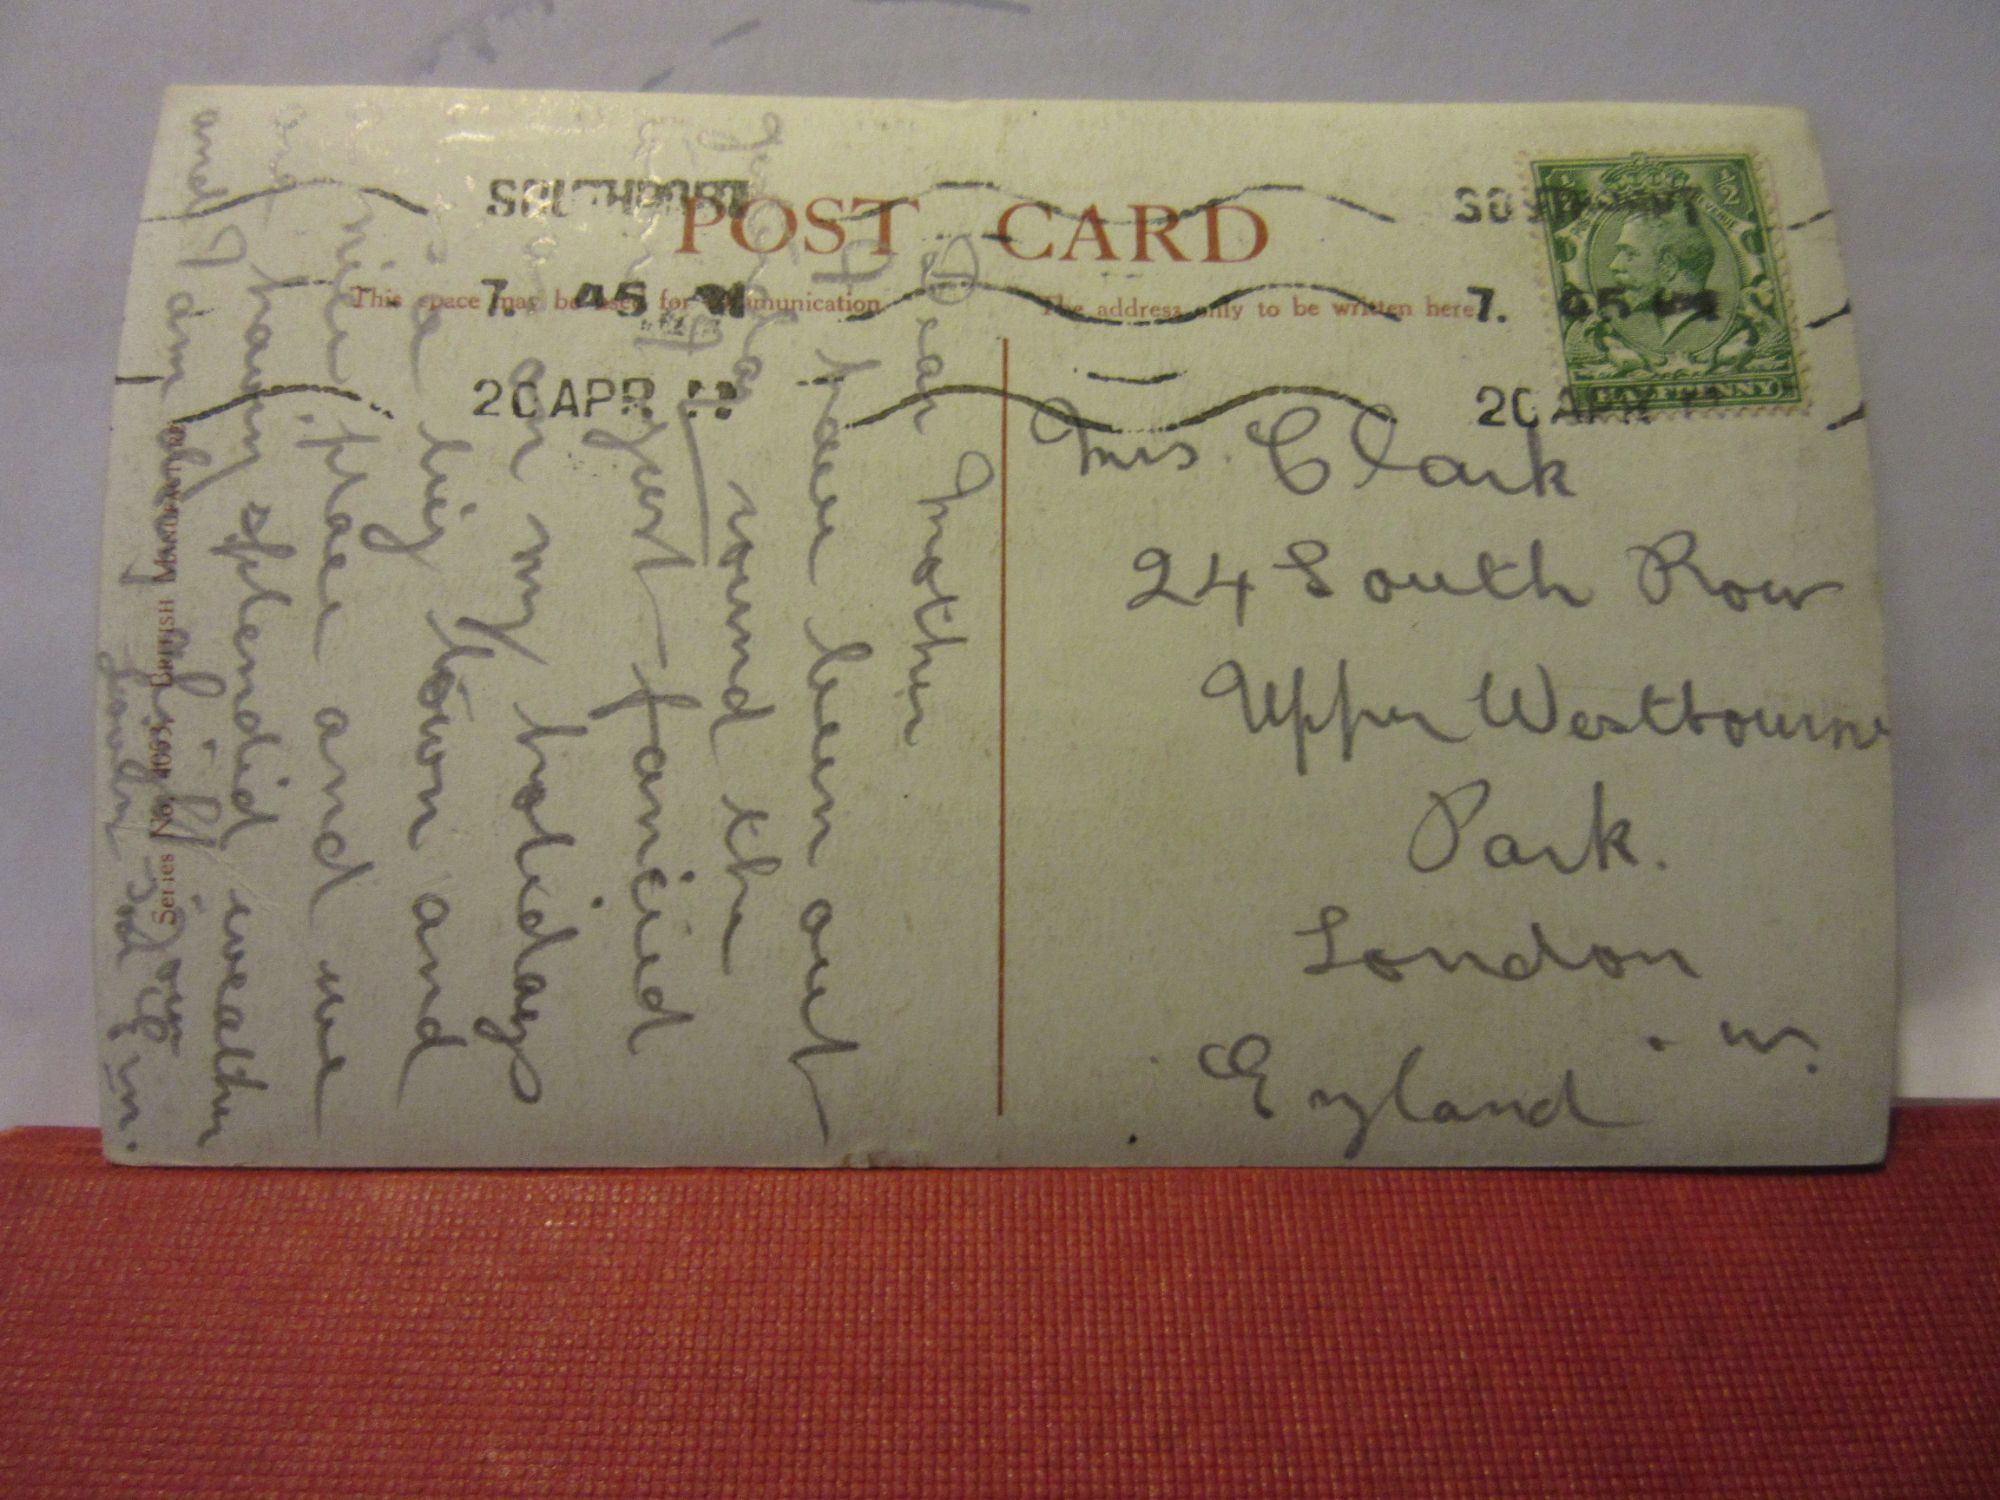 SOUTHPORT
7. 45 PM
20 APR
POST CARD
SOUTHPORT
7. 45 PM
20 APR
½
½
HALFPENNY
This space may be used for communication.
The address only to be written here.
Mrs. Clark
24 South Row
Upper Westbourne
Park.
London
. W.
England
Dear Mother
I have been out
round the
just fancied
on my holidays
big town and
nice place and we
having splendid weather
and I am
Your
loving
Series No. 4063. British Manufacture